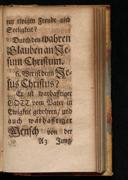 zur ewigen Freude und
Seeligkeit?
Durch den wahren
Glauben an Je-
sum Christum.
6. Wer ist denn Je-
sus Christus?
Er ist warhafftiger
GOTT vom Vater in
Ewigkeit gebohren/ und
auch warhafftiger
Mensch von der
A3 Jung-